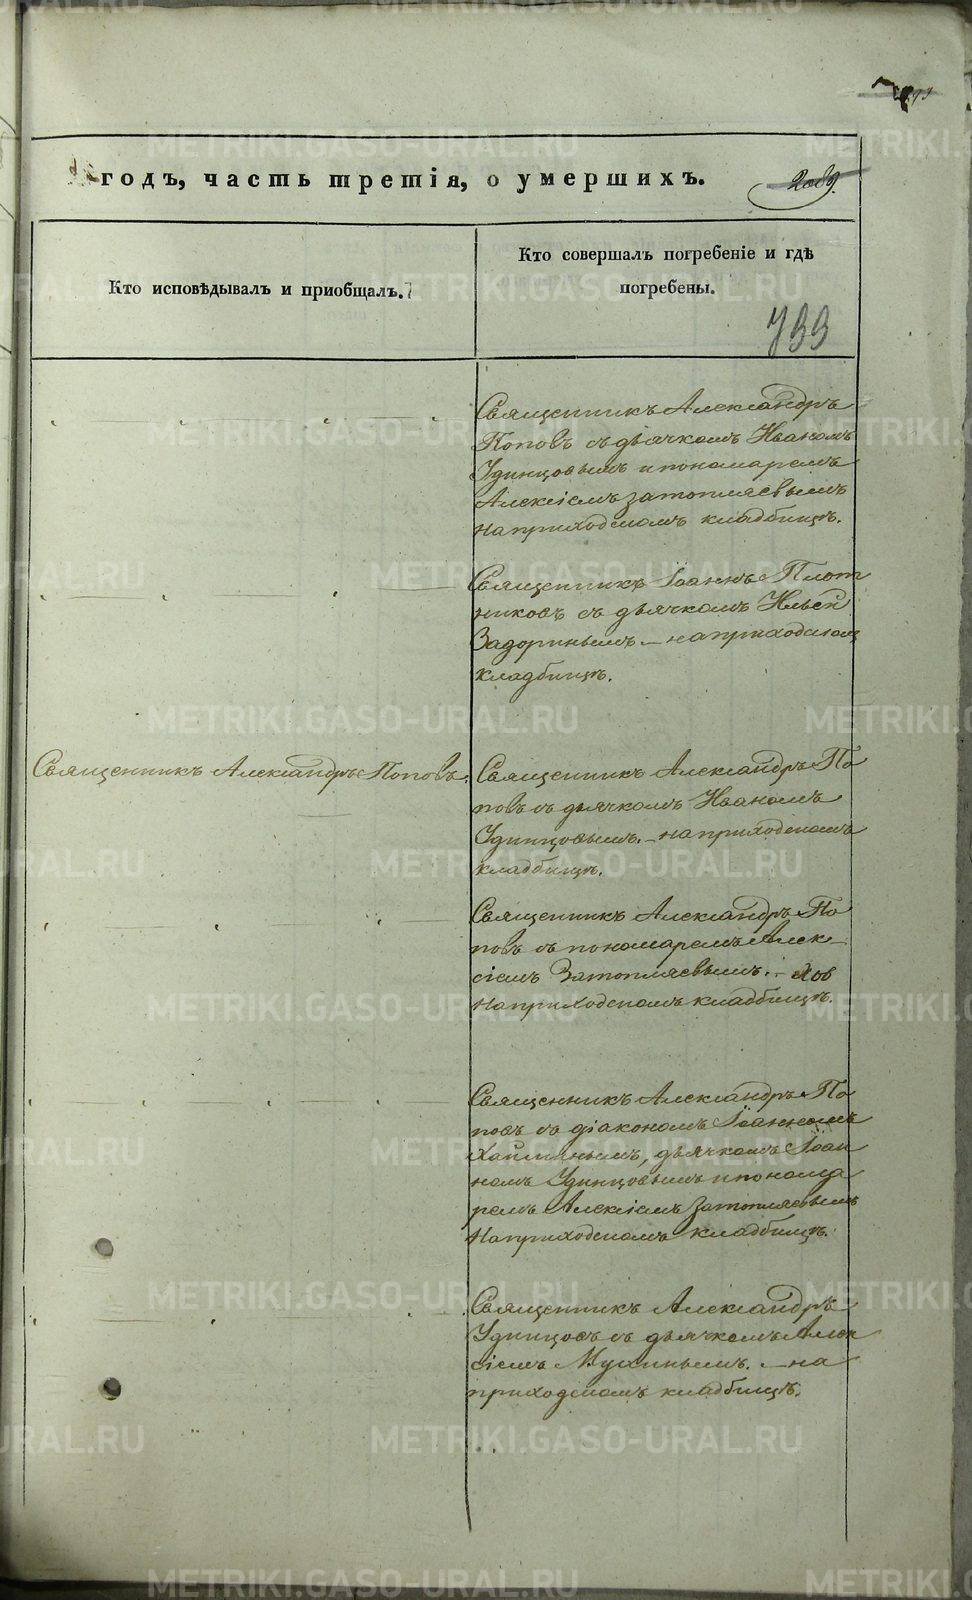 годъ, часть третія, о умершихъ.
2089.
Кто исповѣдывалъ и пріобщалъ.
Кто совершалъ погребеніе и гдѣ
погребены.
799
Священникъ Александръ
Поповъ съ дьячкомъ Иваномъ
Удинцовымъ и пономаремъ
Алексіемъ Затопляевымъ
на приходскомъ кладбищѣ.
Священникъ Іоаннъ Плот
никовъ съ дьячкомъ Ильей
Задоринымъ – на приходском
кладбищѣ.
Священникъ Александръ Поповъ.
Священникъ Александръ По
повъ съ дьячкомъ Иваномъ
Удинцовымъ. – на приходскомъ
кладбищѣ.
Священникъ Александръ По
повъ съ пономаремъ Алек
сіемъ Затопляевымъ. –
на приходскомъ кладбищѣ.
Священникъ Александръ По
повъ съ діакономъ Іоанномъ
дьячкомъ Іоан
номъ Удинцовымъ и понома
ремъ Алексіемъ Затопляевымъ
на приходскомъ кладбищѣ.
Священникъ Александръ
Удинцовъ съ дьячкомъ Алек
сіемъ Мухинымъ. – на
приходскомъ кладбищѣ.
METRIKI.GASO-URAL.RU